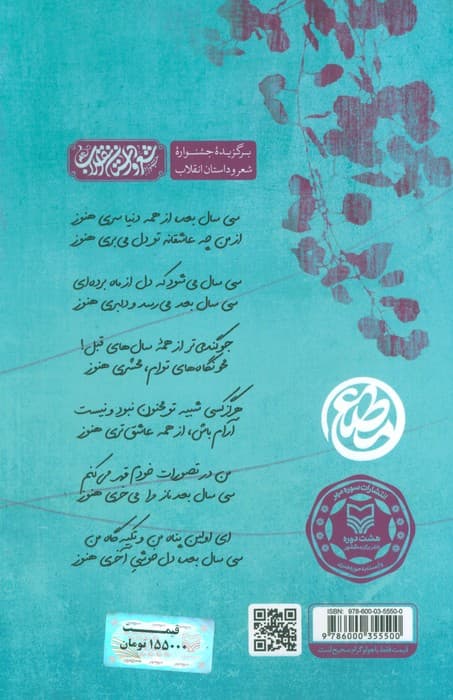 برگزیدهٔ جشنوارهٔ
شعر و داستان انقلاب
سی سال بعد از همه دنیا سری هنوز
از من چه عاشقانه تو دل می‌بری هنوز
سی سال می‌شود که دل از ماه برده‌ای
سی سال بعد می‌رسد و دلبری هنوز
جوگندمی‌تر از همهٔ سال‌های قبل!
محو نگاه‌های توام، محشری هنوز
هرگز کسی شبیه تو مجنون نبود و نیست
آرام باش، از همه عاشق‌تری هنوز
من در تصورات خودم قهر می‌کنم
سی سال بعد ناز مرا می‌خری هنوز
ای اولین پناه من و تکیه‌گاه من
سی سال بعد دل‌خوشی آخری هنوز
انتشارات سوره مهر
هشت دوره
ناشر برگزیده کشور
قیمت
۱۵۵۰۰۰ تومان
ISBN: 978-600-03-5550-0
9 786000 355500
قیمت فقط با هولوگرام صحیح است